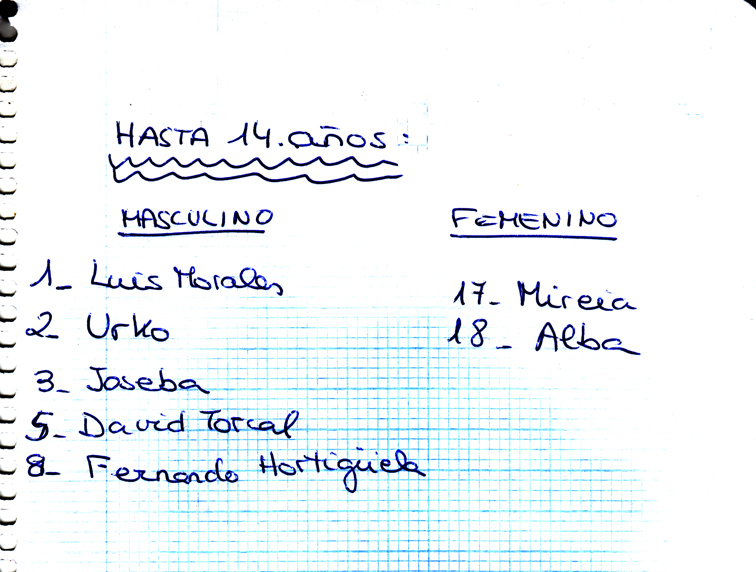 HASTA 14.años:
MASCULINO
1_ Luis Morales
2_ Urko
3_ Joseba
5_ David Torcal
8_ Fernando Hortigüela
FEMENINO
17_ Mireia
18_ Alba